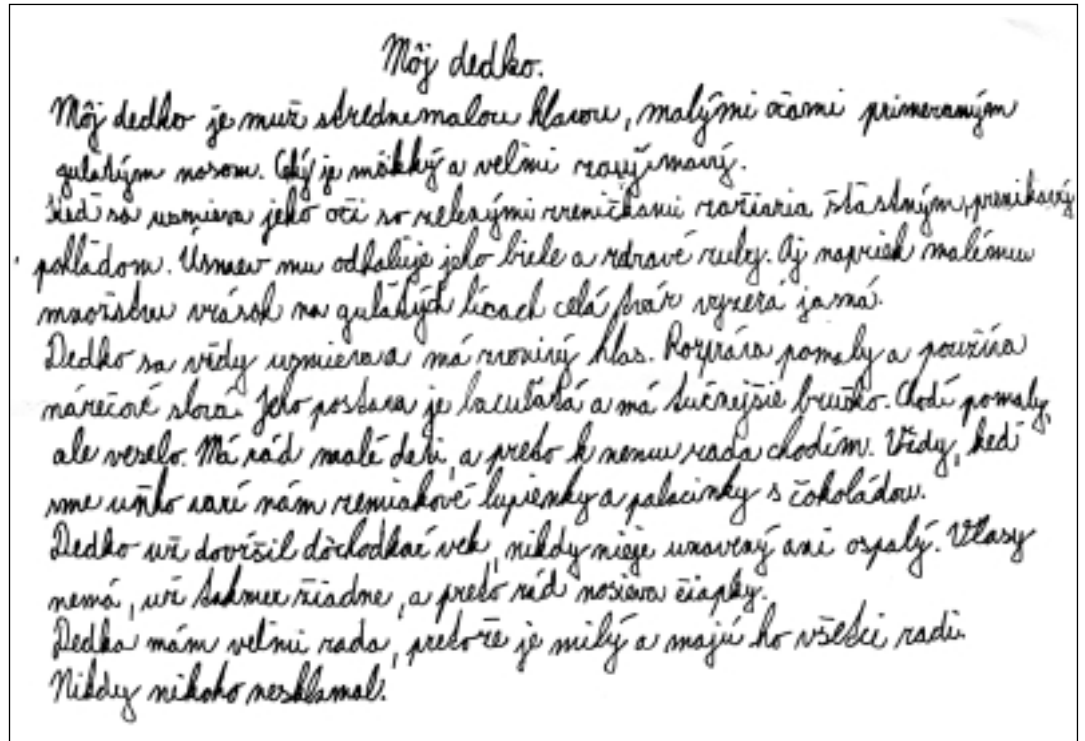 Môj dedko.
Môj dedko je muž strednemalou hlavou, malými očami primeraným
gulatým nosom. Celý je mäkký a veľmi zaujímavý.
Keď sa usmieva jeho oči so zelenými zreničkami rozžiaria šťastným, prenikavý
pohľadom. Úsmev mu odhaľuje jeho biele a zdravé zuby. Aj napriek malému
množstvu vrások na guľatých lícach celá tvár vyzerá jasná.
Dedko sa vždy usmieva a má zvonivý hlas. Rozpráva pomaly a používa
nárečové slová. Jeho postava je bacuľatá a má tučnejšie bruško. Chodí pomaly,
ale veselo. Má rád malé deti, a preto k nemu rada chodím. Vždy, keď
sme uňho varí nám zemiakové lupienky a palacinky s čokoládou.
Dedko už dovŕšil dôchodkový vek, nikdy nieje unavený ani ospalý. Vlasy
nemá, už takmer žiadne, a preto rád nosieva čiapky.
Dedka mám veľmi rada, pretože je milý a majú ho všetci radi.
Nikdy nikoho nesklamal.